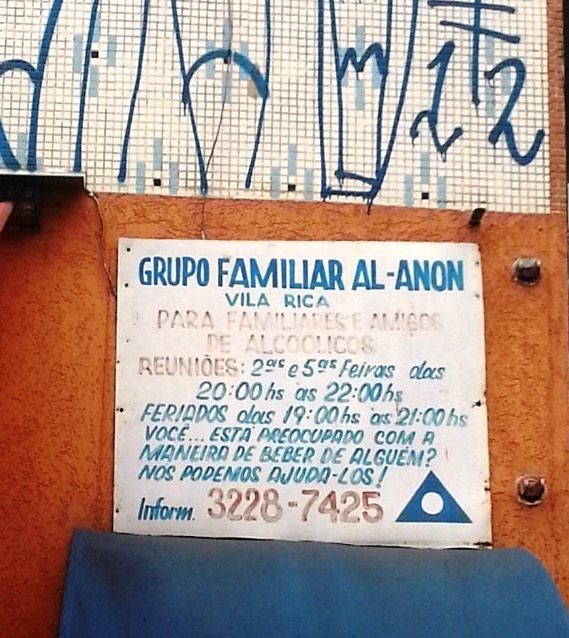 GRUPO FAMILIAR AL-ANON
VILA RICA
PARA FAMILIARES E AMIGOS
DE ALCOÓLICOS
REUNIÕES: 2ªs e 5ªs Feiras das
20:00hs às 22:00hs
FERIADOS das 19:00hs às 21:00hs
VOCÊ... ESTÁ PREOCUPADO COM A
MANEIRA DE BEBER DE ALGUÉM?
NÓS PODEMOS AJUDA-LOS!
Inform. 3228-7425